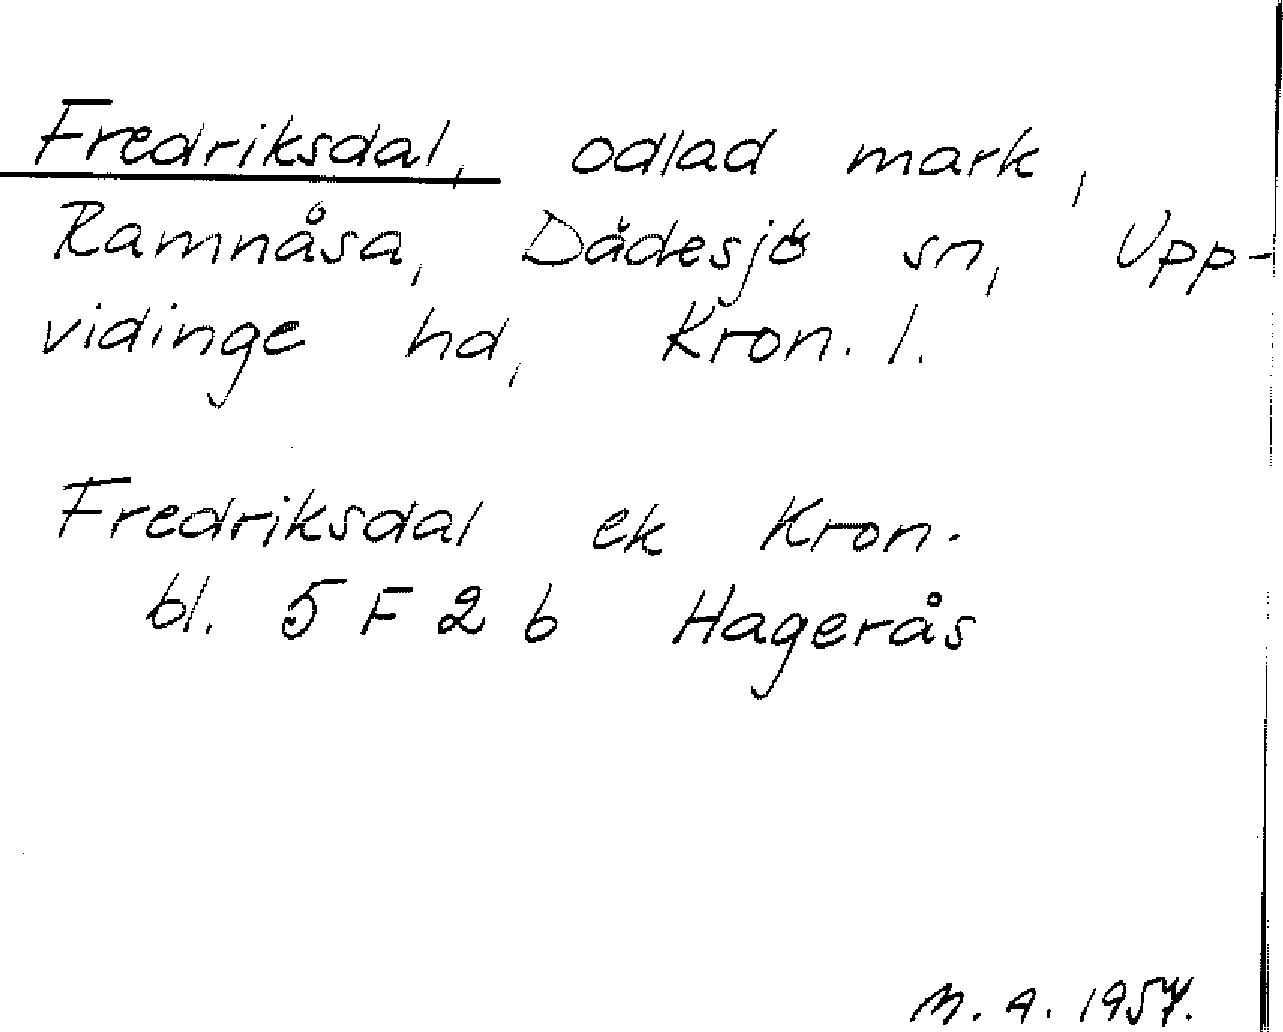 Fredriksdal, odlad mark,
Ramnåsa, Dädesjö sn, Upp-
vidinge hd, Kron. l.
Fredriksdal ek Kron.
bl. 5 F 2 b Hagerås
M. A. 1957.